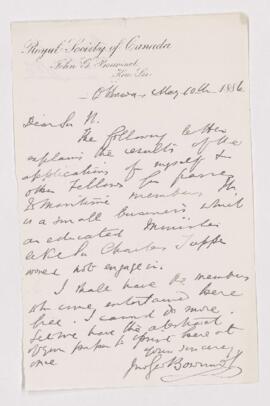 Royal Society of Canada
John G. Bourinot,
Hon. Sec.
Ottawa May 10th 1886
Dear Sir
The following letter
explains the results of the
application of myself &
other Fellows for
Maritime members. It
is a small business which
an educated Minister
like Sir Charles Tupper
would not engage in.
I shall have the members
who come entertained here
free. I cannot do more.
Let me have the abstract
of your paper to print here at
once
Yours sincerely
Jno Geo Bourinot